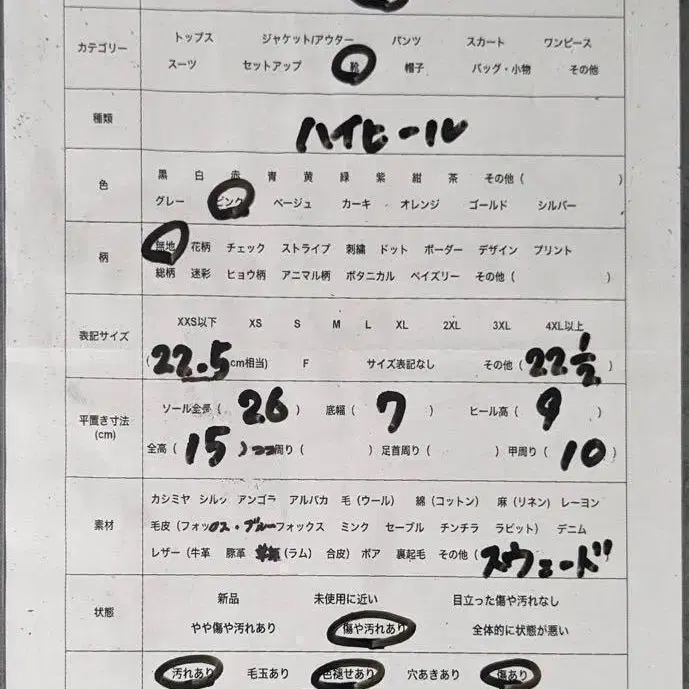 カテゴリー
トップス ジャケット/アウター パンツ スカート ワンピース
スーツ セットアップ 靴 帽子 バッグ・小物 その他
種類
ハイヒール
色
黒 白 赤 青 黄 緑 紫 紺 茶 その他 ( )
グレー ピンク ベージュ カーキ オレンジ ゴールド シルバー
柄
無地 花柄 チェック ストライプ 刺繍 ドット ボーダー デザイン プリント
総柄 迷彩 ヒョウ柄 アニマル柄 ボタニカル ペイズリー その他 ( )
表記サイズ
XXS以下 XS S M L XL 2XL 3XL 4XL以上
(22.5cm相当) F サイズ表記なし その他 (22 1/2)
平置き寸法
(cm)
ソール全長 (26) 底幅 (7) ヒール高 (9)
全高 (15) 周り ( ) 足首周り ( ) 甲周り (10)
素材
カシミヤ シルク アンゴラ アルパカ 毛 (ウール) 綿 (コットン) 麻 (リネン) レーヨン
毛皮 (フォックス・ブルーフォックス ミンク セーブル チンチラ ラビット) デニム
レザー (牛革 豚革 (ラム) 合皮) ボア 裏起毛 その他 (スウェード
状態
新品 未使用に近い 目立った傷や汚れなし
やや傷や汚れあり 傷や汚れあり 全体的に状態が悪い
汚れあり 毛玉あり 色褪せあり 穴あきあり 傷あり